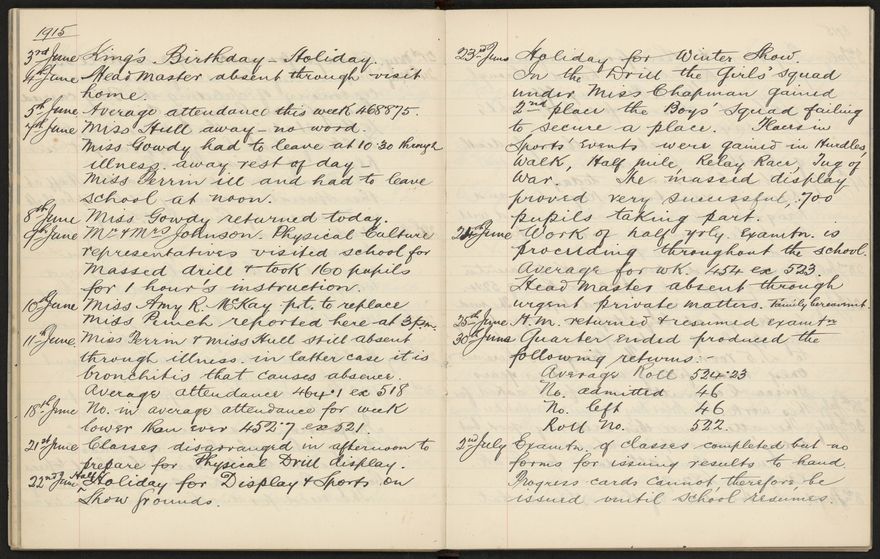 1915
3rd June King's Birthday - Holiday.
4th June Head Master absent through visit
home.
5th June Average attendance this week 468.875.
7th June Miss Hull away - no word.
Miss Gowdy had to leave at 10.30 through
illness, away rest of day
Miss Perrin ill and had to leave
school at noon.
8th June Miss Gowdy returned today.
9th June Mr & Mrs Johnson. Physical Culture
representatives visited school for
massed drill & took 160 pupils
for 1 hour's instruction.
10th June Miss Amy R. McKay p.t. to replace
Miss Pinch reported here at 3 p.m.
11th June Miss Perrin & Miss Hull still absent
through illness. in latter case it is
bronchitis that causes absence.
Average attendance 464.1 ex 518
18th June No. in average attendance for week
lower than ever 452.7 ex 521.
21st June Classes disarranged in afternoon to
prepare for Physical Drill display.
22nd June Half Holiday for Display & Sports on
Show Grounds.
23rd June Holiday for Winter Show.
In the Drill the Girls' Squad
under Miss Chapman gained
2nd place the Boys' Squad failing
to secure a place. Places in
Sports' Events were gained in Hurdles,
Walk, Half mile, Relay Race, Tug of
War. The massed display
proved very successful, 700
pupils taking part.
24th June Work of half yrly. Examtn. is
proceeding throughout the school.
Average for wk. 454 ex 523.
Head Master absent through
urgent private matters.
25th June H.M. returned & resumed examtn
30th June Quarter ended produced the
following returns:-
Average Roll 524.23
No. admitted 46
No. left 46
Roll No. 522
2nd July Examtn. of classes completed but no
forms for issuing results to hand.
Progress cards cannot therefore be
issued until school resumes.